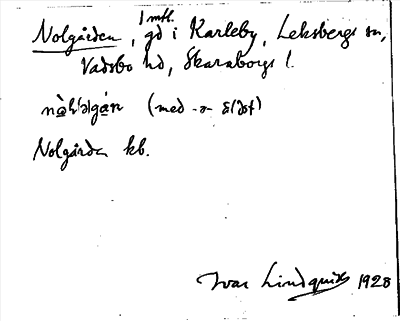 Nolgården, 1 mtl. gd i Karleby, Leksbergs sn,
Vadsbo hd, Skaraborgs l.
(med -ə- slöt)
Nolgården kb.
Ivar Lindquist 1928